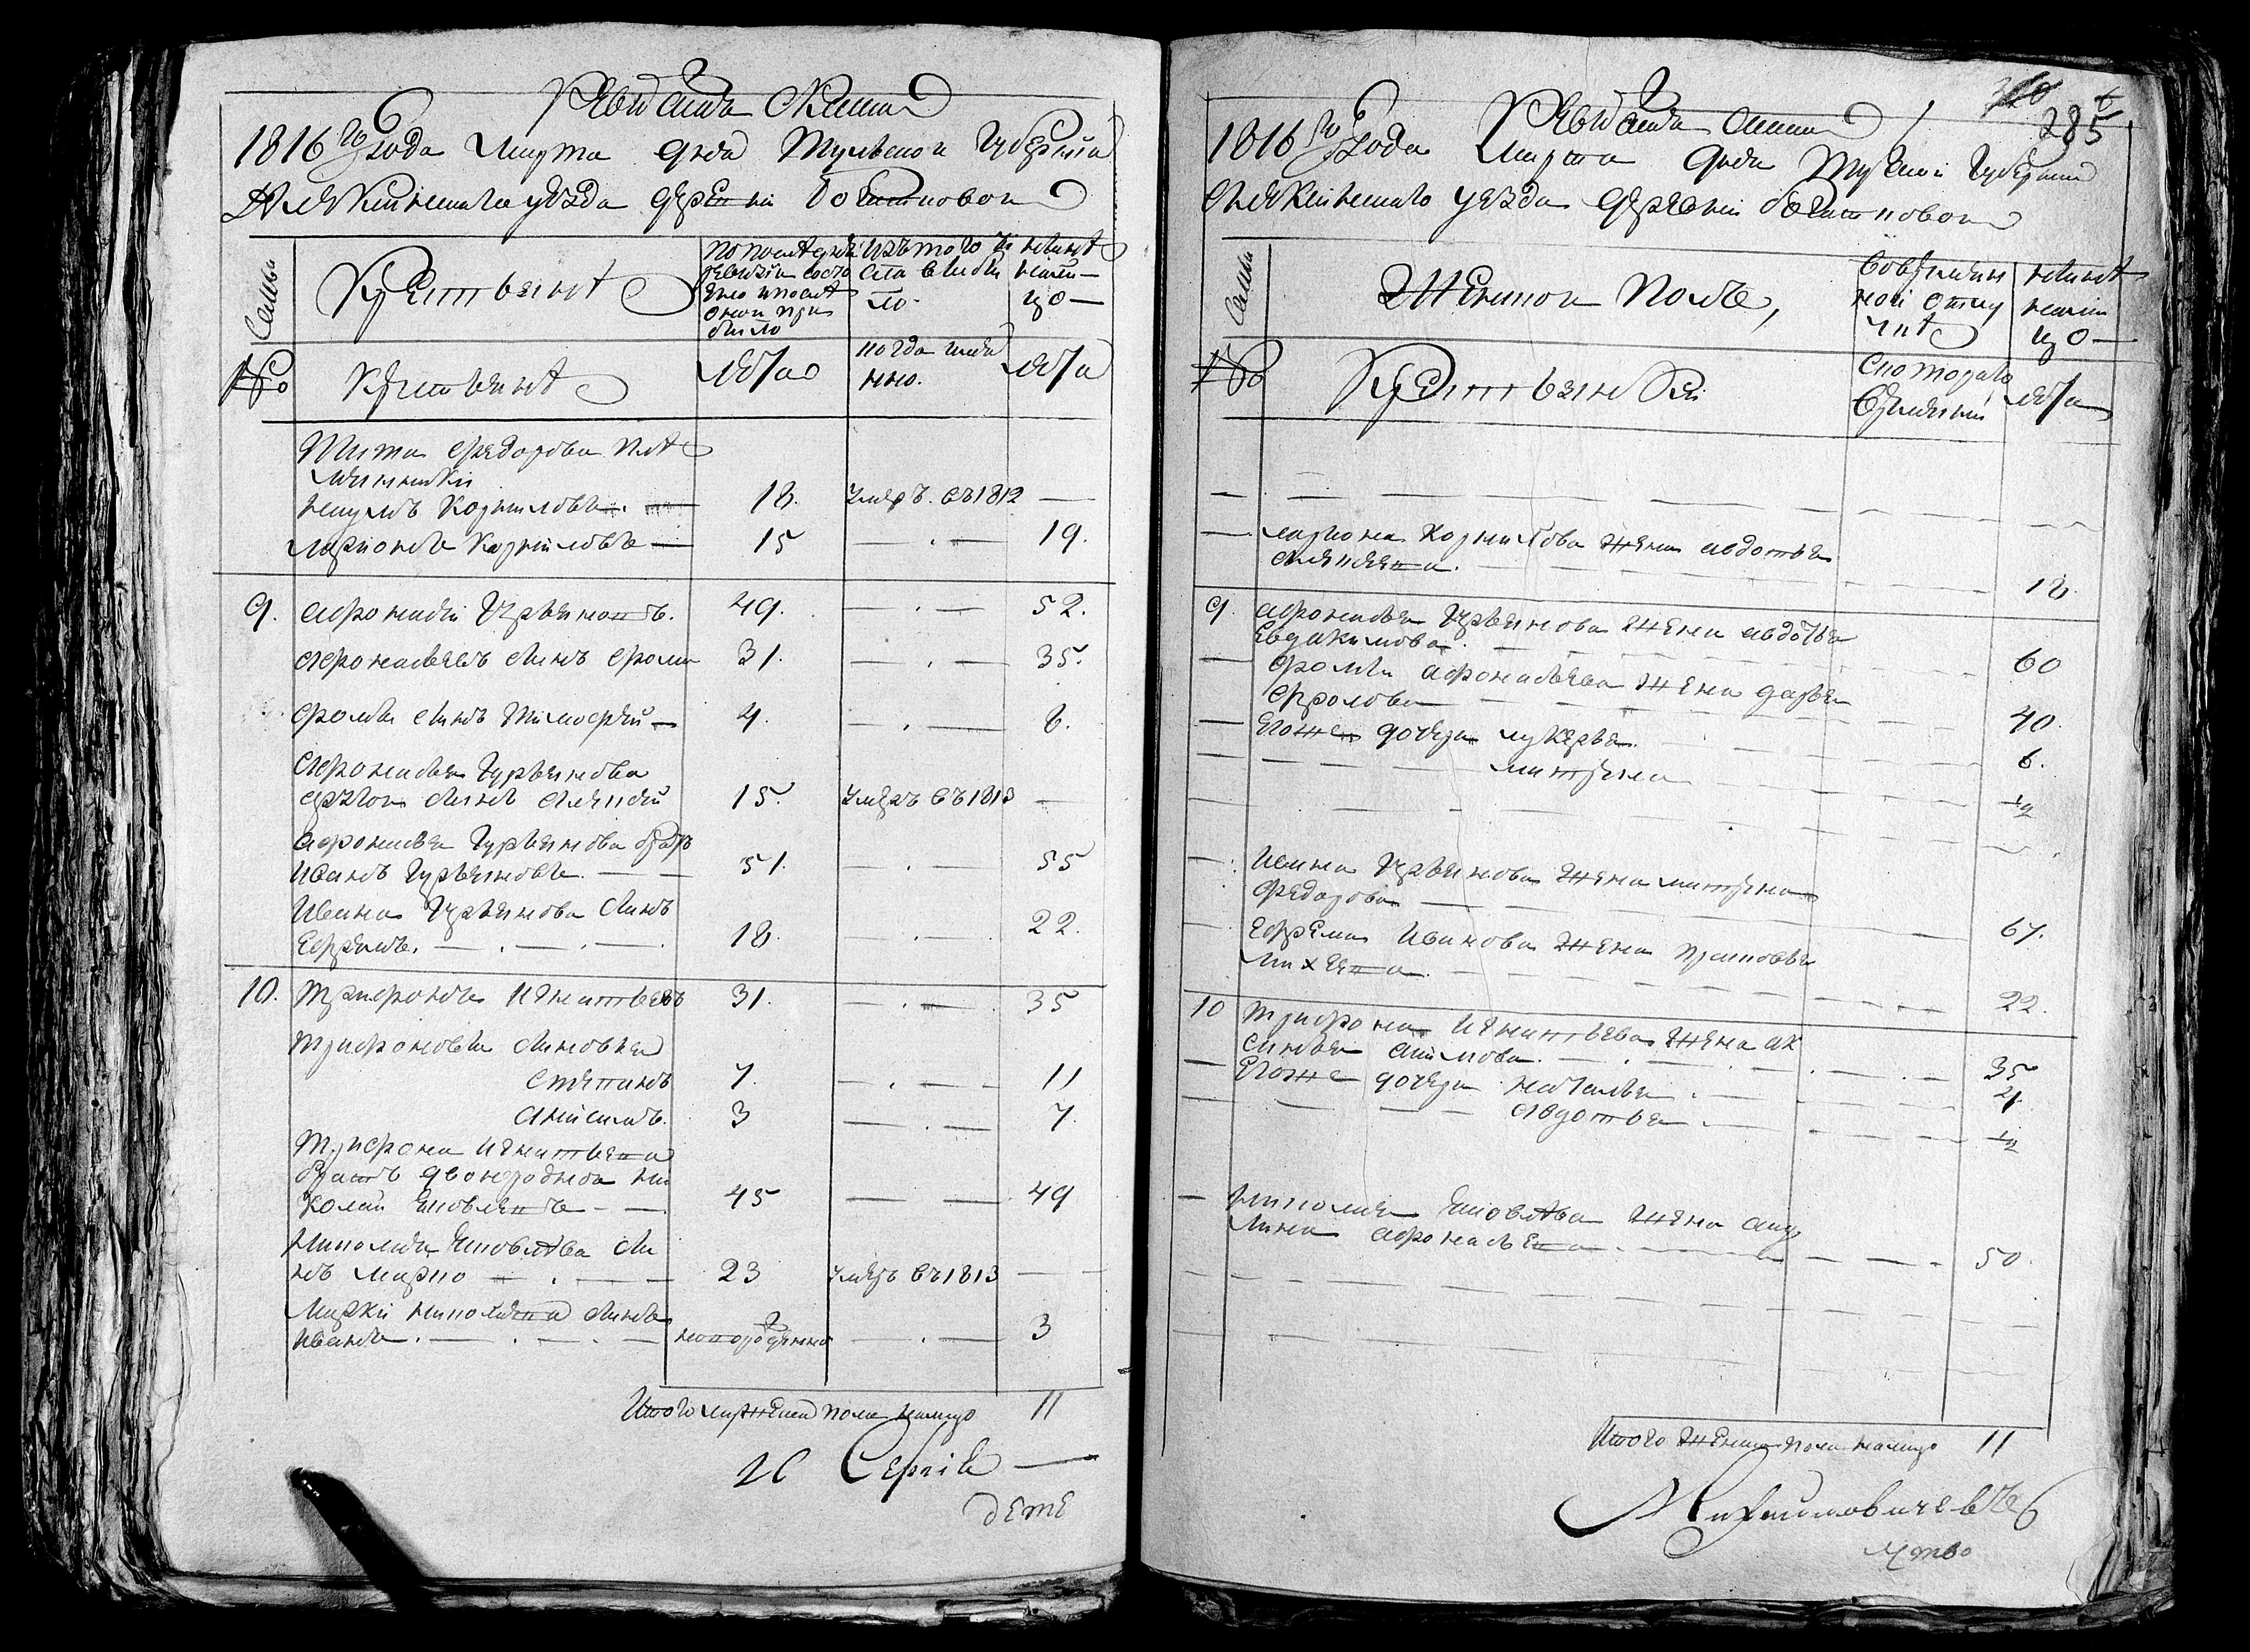 Ревизская Скаска
1816го Года Марта дня Тульской Губернии
Алексинскаго уезда деревни Богатковой
Семьи
Крестьяне
По последней ревизии состояло и после оной прибыло
Изъ того числа выбыло
ныне налицо
№
Крестьяне
лета
когда имянно
лета
Тита Федорова племянники
Наумъ Корниловъ 18. умеръ въ 1812
Ларионъ Корниловъ 15 19.
9. Афонасий Гурьяновъ. 49. 52.
Афонасьевъ сынъ Фрол 31. 35.
сынъ Тимофей 4. 8.
Афонасья Гурьянова
другой сынъ Алексей 15. умеръ въ 1813
Афонасья Гурьянова братъ
Иванъ Гурьяновъ. 51. 55
Ивана Гурьянова сынъ
Ефремъ. 18. 22.
10. Трифонъ Игнатьевъ 31. 35
Трифоновы сыновья
Степанъ 7. 11
Анисимъ. 3 7.
Трифона Игнатьева
братъ двоюродной Ни
колай Яковлевъ 45 49
Николая Яковлева сы
нъ Марко 23 умеръ въ 1813
Марки Николаева сынъ
Иванъ. новорожденной 3
Итого мужеска пола налицо 11
Сергий
дете
285
1816го Года Ревизская Скаска
Марта дня Тульской Губернии
Алексинскаго уезда деревни Богатковой
Семьи
Женской Полъ,
Во временной отлучке
ныне налицо
№
Крестьянки
С котораго времени
лета
Лариона Корнилова жена Авдотья
Алексеева. 18.
9. Афонасья Гурьянова жена Авдотья
Евдакимова. 60
Афонасьева жена Дарья
Фролова 40.
Егоже дочери Лукерья. 6.
Матрена 1/2
Ивана Гурьянова жена Матрена
Федорова 67.
Ефрема Иванова жена Прасковья
Михеева. 22.
10 Трифона Игнатьева жена Ак
синья 35
Егоже дочери Наталья 4.
Авдотья 1/2
Николая Яковлева жена Аку
лина Афонасьева. 50.
Итого женска пола налицо 11